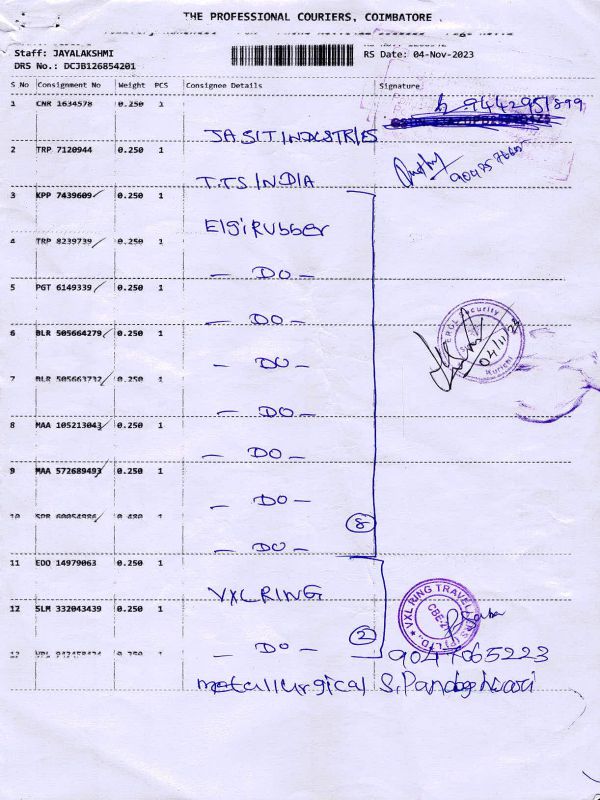 THE PROFESSIONAL COURIERS, COIMBATORE .
Staff: JAYALAKSHMI
DRS No.: DCJB126854201
RS Date: 04-Nov-2023
S No Consignment No Weight PCS Consignee Details Signature
1 CNR 1634578 0.250 1
9442951899
INDUSTRIES
2 TRP 7120944 0.250 1
T.TS INDIA
3 KPP 7439609 0.250 1
Elgi Rubber
4 TRP 8239739 0.250 1
— DO —
5 PGT 6149339 0.250 1
— DO —
6 BLR 505664279 0.250 1
Security
04/11/23
Kurichi
— DO —
7 BLR 505663732 0.250 1
— DO —
8 MAA 105213043 0.250 1
— DO —
9 MAA 572689493 0.250 1
— DO —
8
10 1
— DO —
11 EDO 14979063 0.250 1
VXL RING
VXL RING TRAVELLERS
12 SLM 332043439 0.250 1
2
— DO —
9047065223
metallurgical